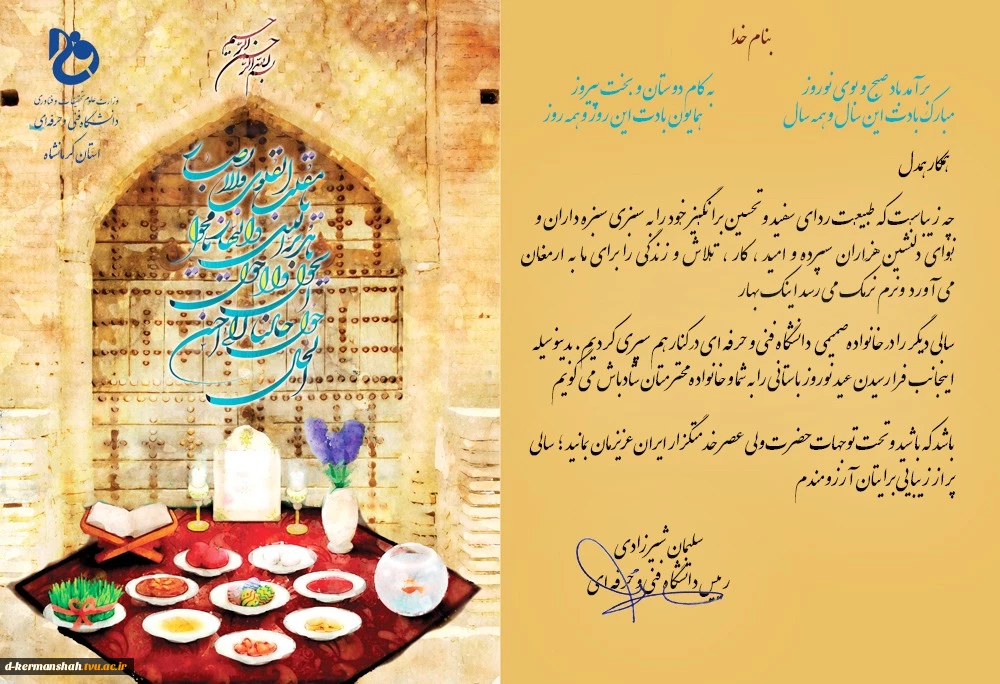 بنام خدا
برآمد باد صبح و بوی نوروز
به کام دوستان و بخت پیروز
مبارک بادت این سال و همه سال
همایون بادت این روز و همه روز
همکار همدل
چه زیباست که طبیعت ردای سفید و تحسین برانگیز خود را به سبزی سبزه داران و
نوای دلنشین هزاران سپرده و امید ، کار ، تلاش و زندگی را برای ما به ارمغان
می آورد و نرم نرمک می رسد اینک بهار
سالی دیگر را در خانواده صمیمی دانشگاه فنی و حرفه ای در کنار هم سپری کردیم . بدینوسیله
اینجانب فرارسیدن عید نوروز باستانی را به شما و خانواده محترمتان شادباش می گویم
باشد که باشید و تحت توجهات حضرت ولی عصر خدمتگزار ایران عزیزمان بمانید ؛ سالی
پر از زیبایی برایتان آرزومندم
سلیمان شیرزادی
رییس دانشگاه فنی و حرفه ای
بسم الله الرحمن الرحیم
وزارت علوم تحقیقات و فناوری
دانشگاه فنی و حرفه ای
استان کرمانشاه
یا مقلب القلوب والابصار
یا مدبر اللیل والنهار
یا محول الحول والاحوال
حول حالنا الی احسن الحال
d-kermanshah.tvu.ac.ir